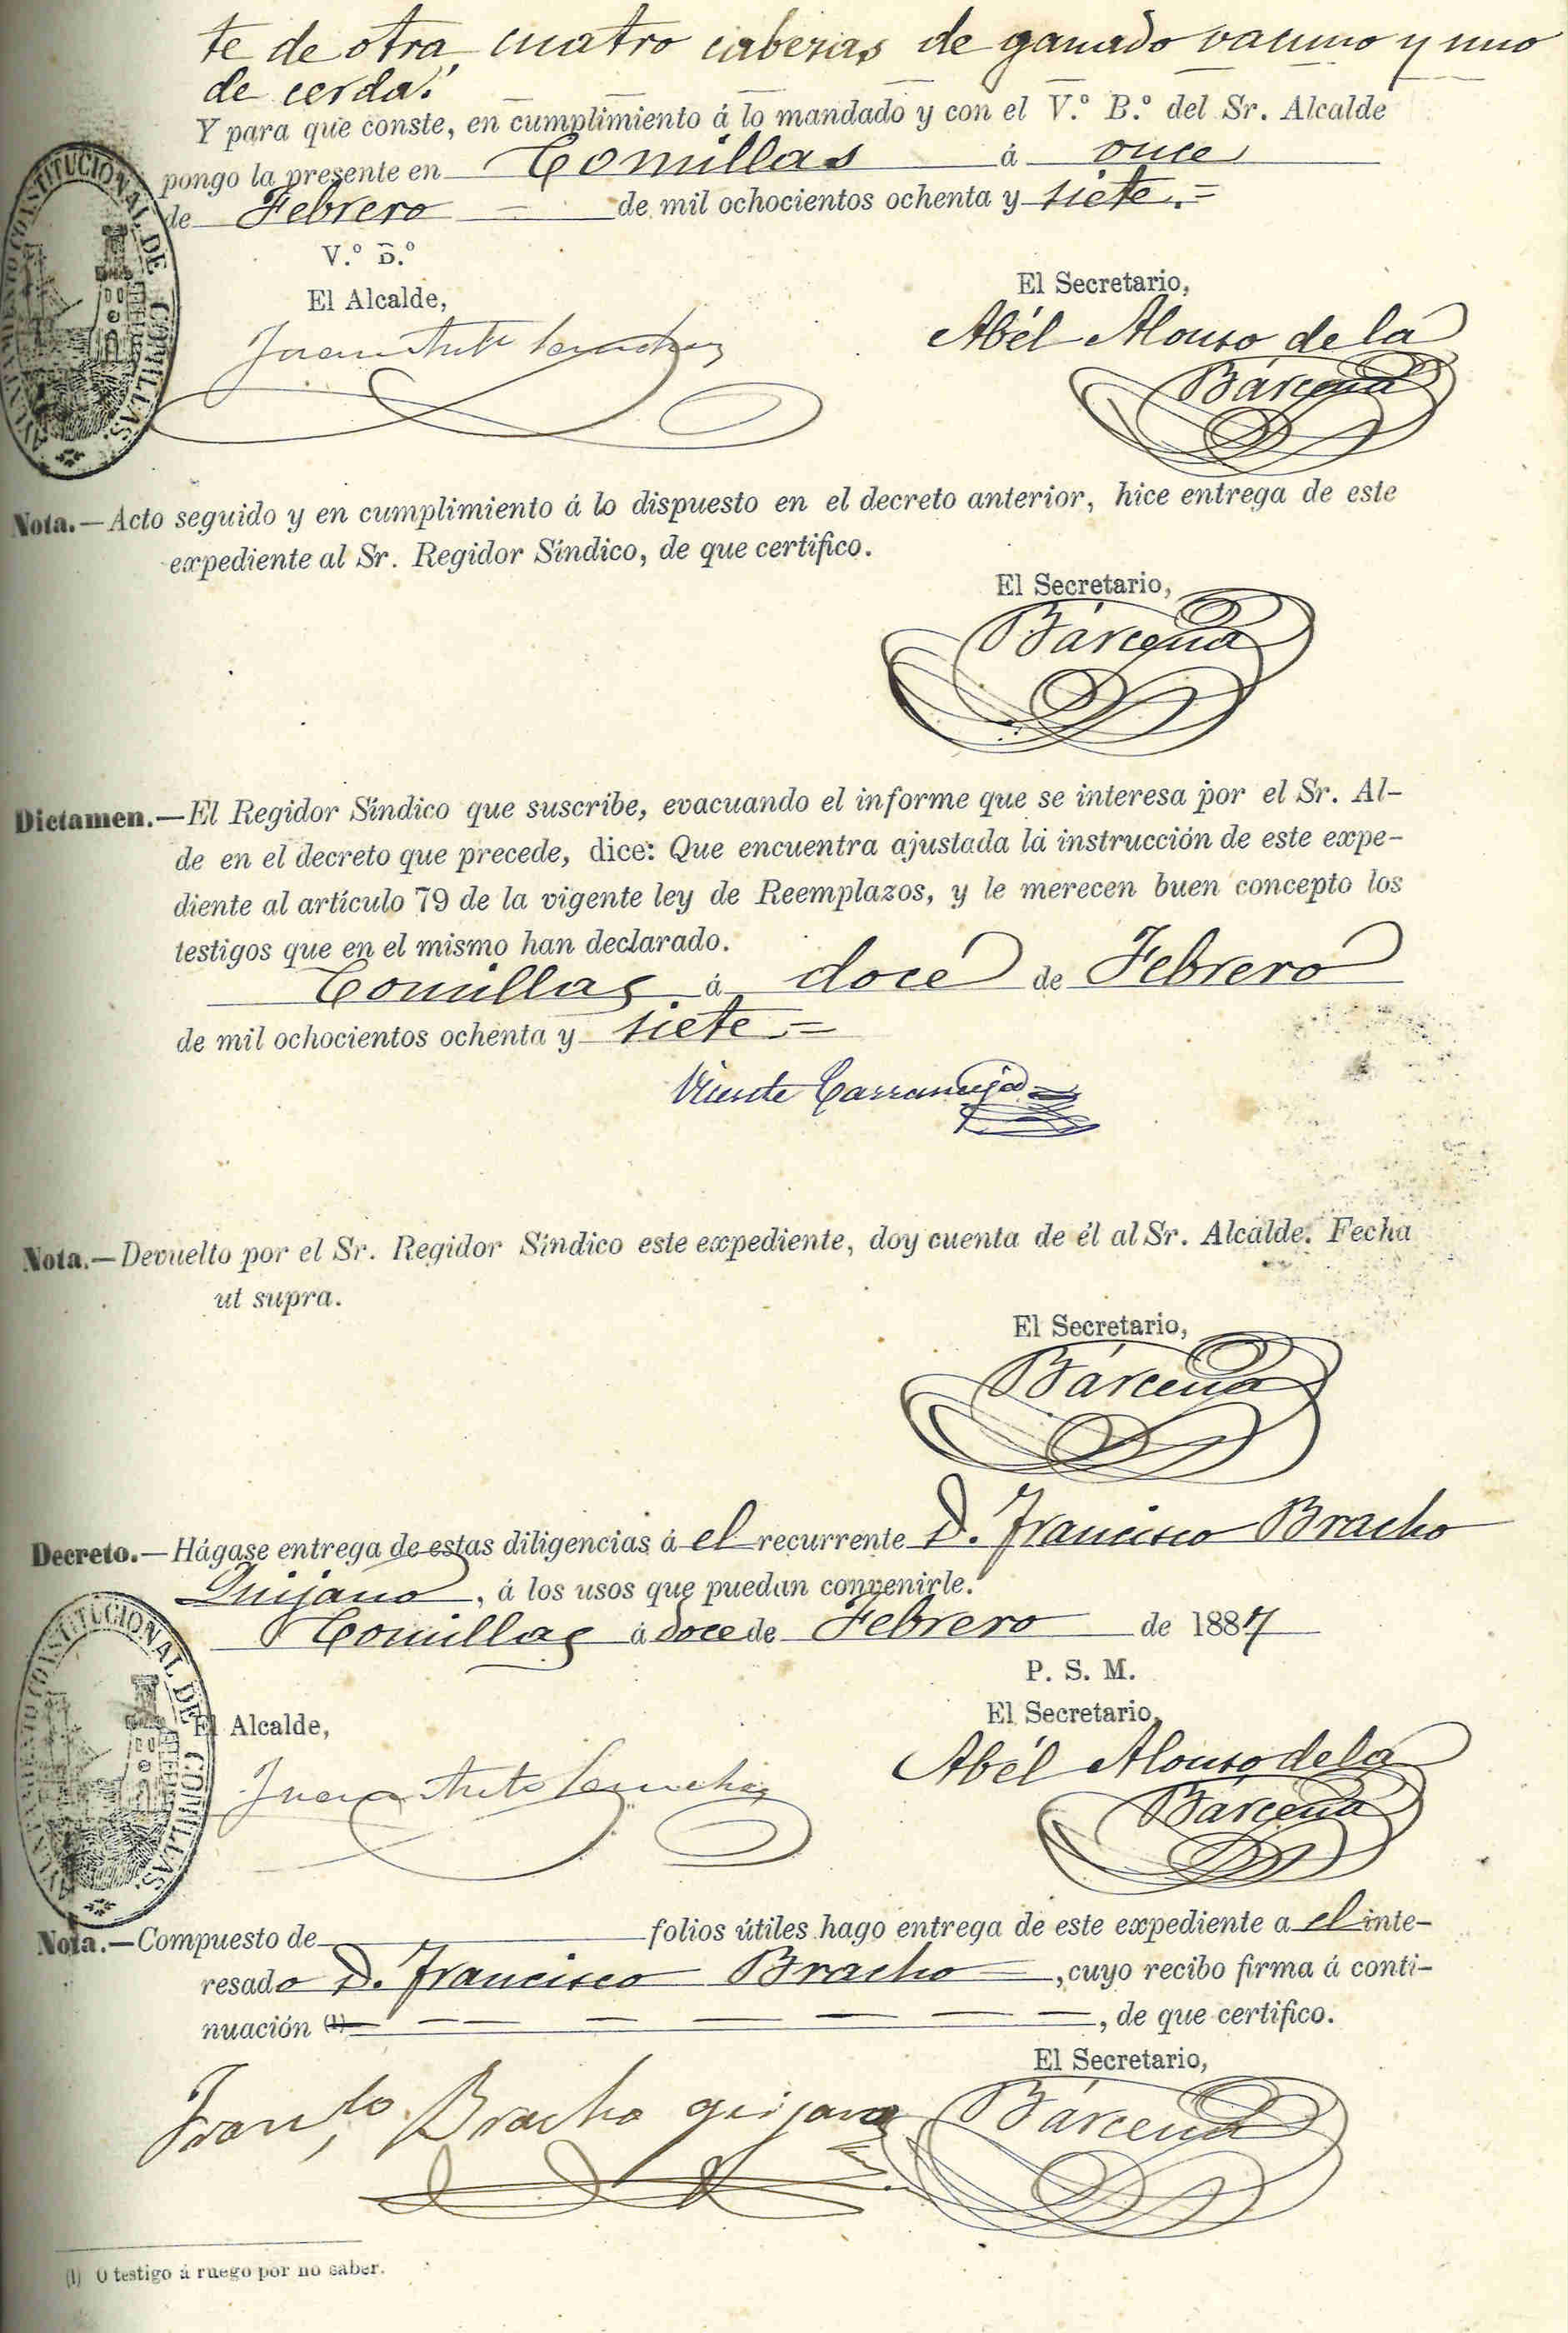 te de otra, cuatro cabezas de ganado vacuno y uno
de cerda.
Y para que conste, en cumplimiento á lo mandado y con el V.º B.º del Sr. Alcalde
pongo la presente en Comillas á once
de Febrero de mil ochocientos ochenta y siete.=
V.º B.º
El Alcalde,
El Secretario,
Juan Anto
Abél Alonso de la
Bárcena
AYUNTAMIENTO CONSTITUCIONAL DE COMILLAS
Nota.—Acto seguido y en cumplimiento á lo dispuesto en el decreto anterior, hice entrega de este
expediente al Sr. Regidor Síndico, de que certifico.
El Secretario,
Bárcena
Dictamen.—El Regidor Síndico que suscribe, evacuando el informe que se interesa por el Sr. Al-
de en el decreto que precede, dice: Que encuentra ajustada la instrucción de este expe-
diente al artículo 79 de la vigente ley de Reemplazos, y le merecen buen concepto los
testigos que en el mismo han declarado.
Comillas á doce de Febrero
de mil ochocientos ochenta y siete.=
Vicente
Nota.—Devuelto por el Sr. Regidor Síndico este expediente, doy cuenta de él al Sr. Alcalde. Fecha
ut supra.
El Secretario,
Bárcena
Decreto.—Hágase entrega de estas diligencias á el recurrente D. Francisco Bracho
Quijano, á los usos que puedan convenirle.
Comillas á doce de Febrero de 1887
P. S. M.
El Alcalde,
El Secretario,
Juan Anto
Abél Alonso de la
Bárcena
AYUNTAMIENTO CONSTITUCIONAL DE COMILLAS
Nota.—Compuesto de folios útiles hago entrega de este expediente a el inte-
resado D. Francisco Bracho, cuyo recibo firma á conti-
nuación (1) — — — — — — —, de que certifico.
El Secretario,
Franco Bracho quijano
Bárcena
(1) O testigo á ruego por no saber.